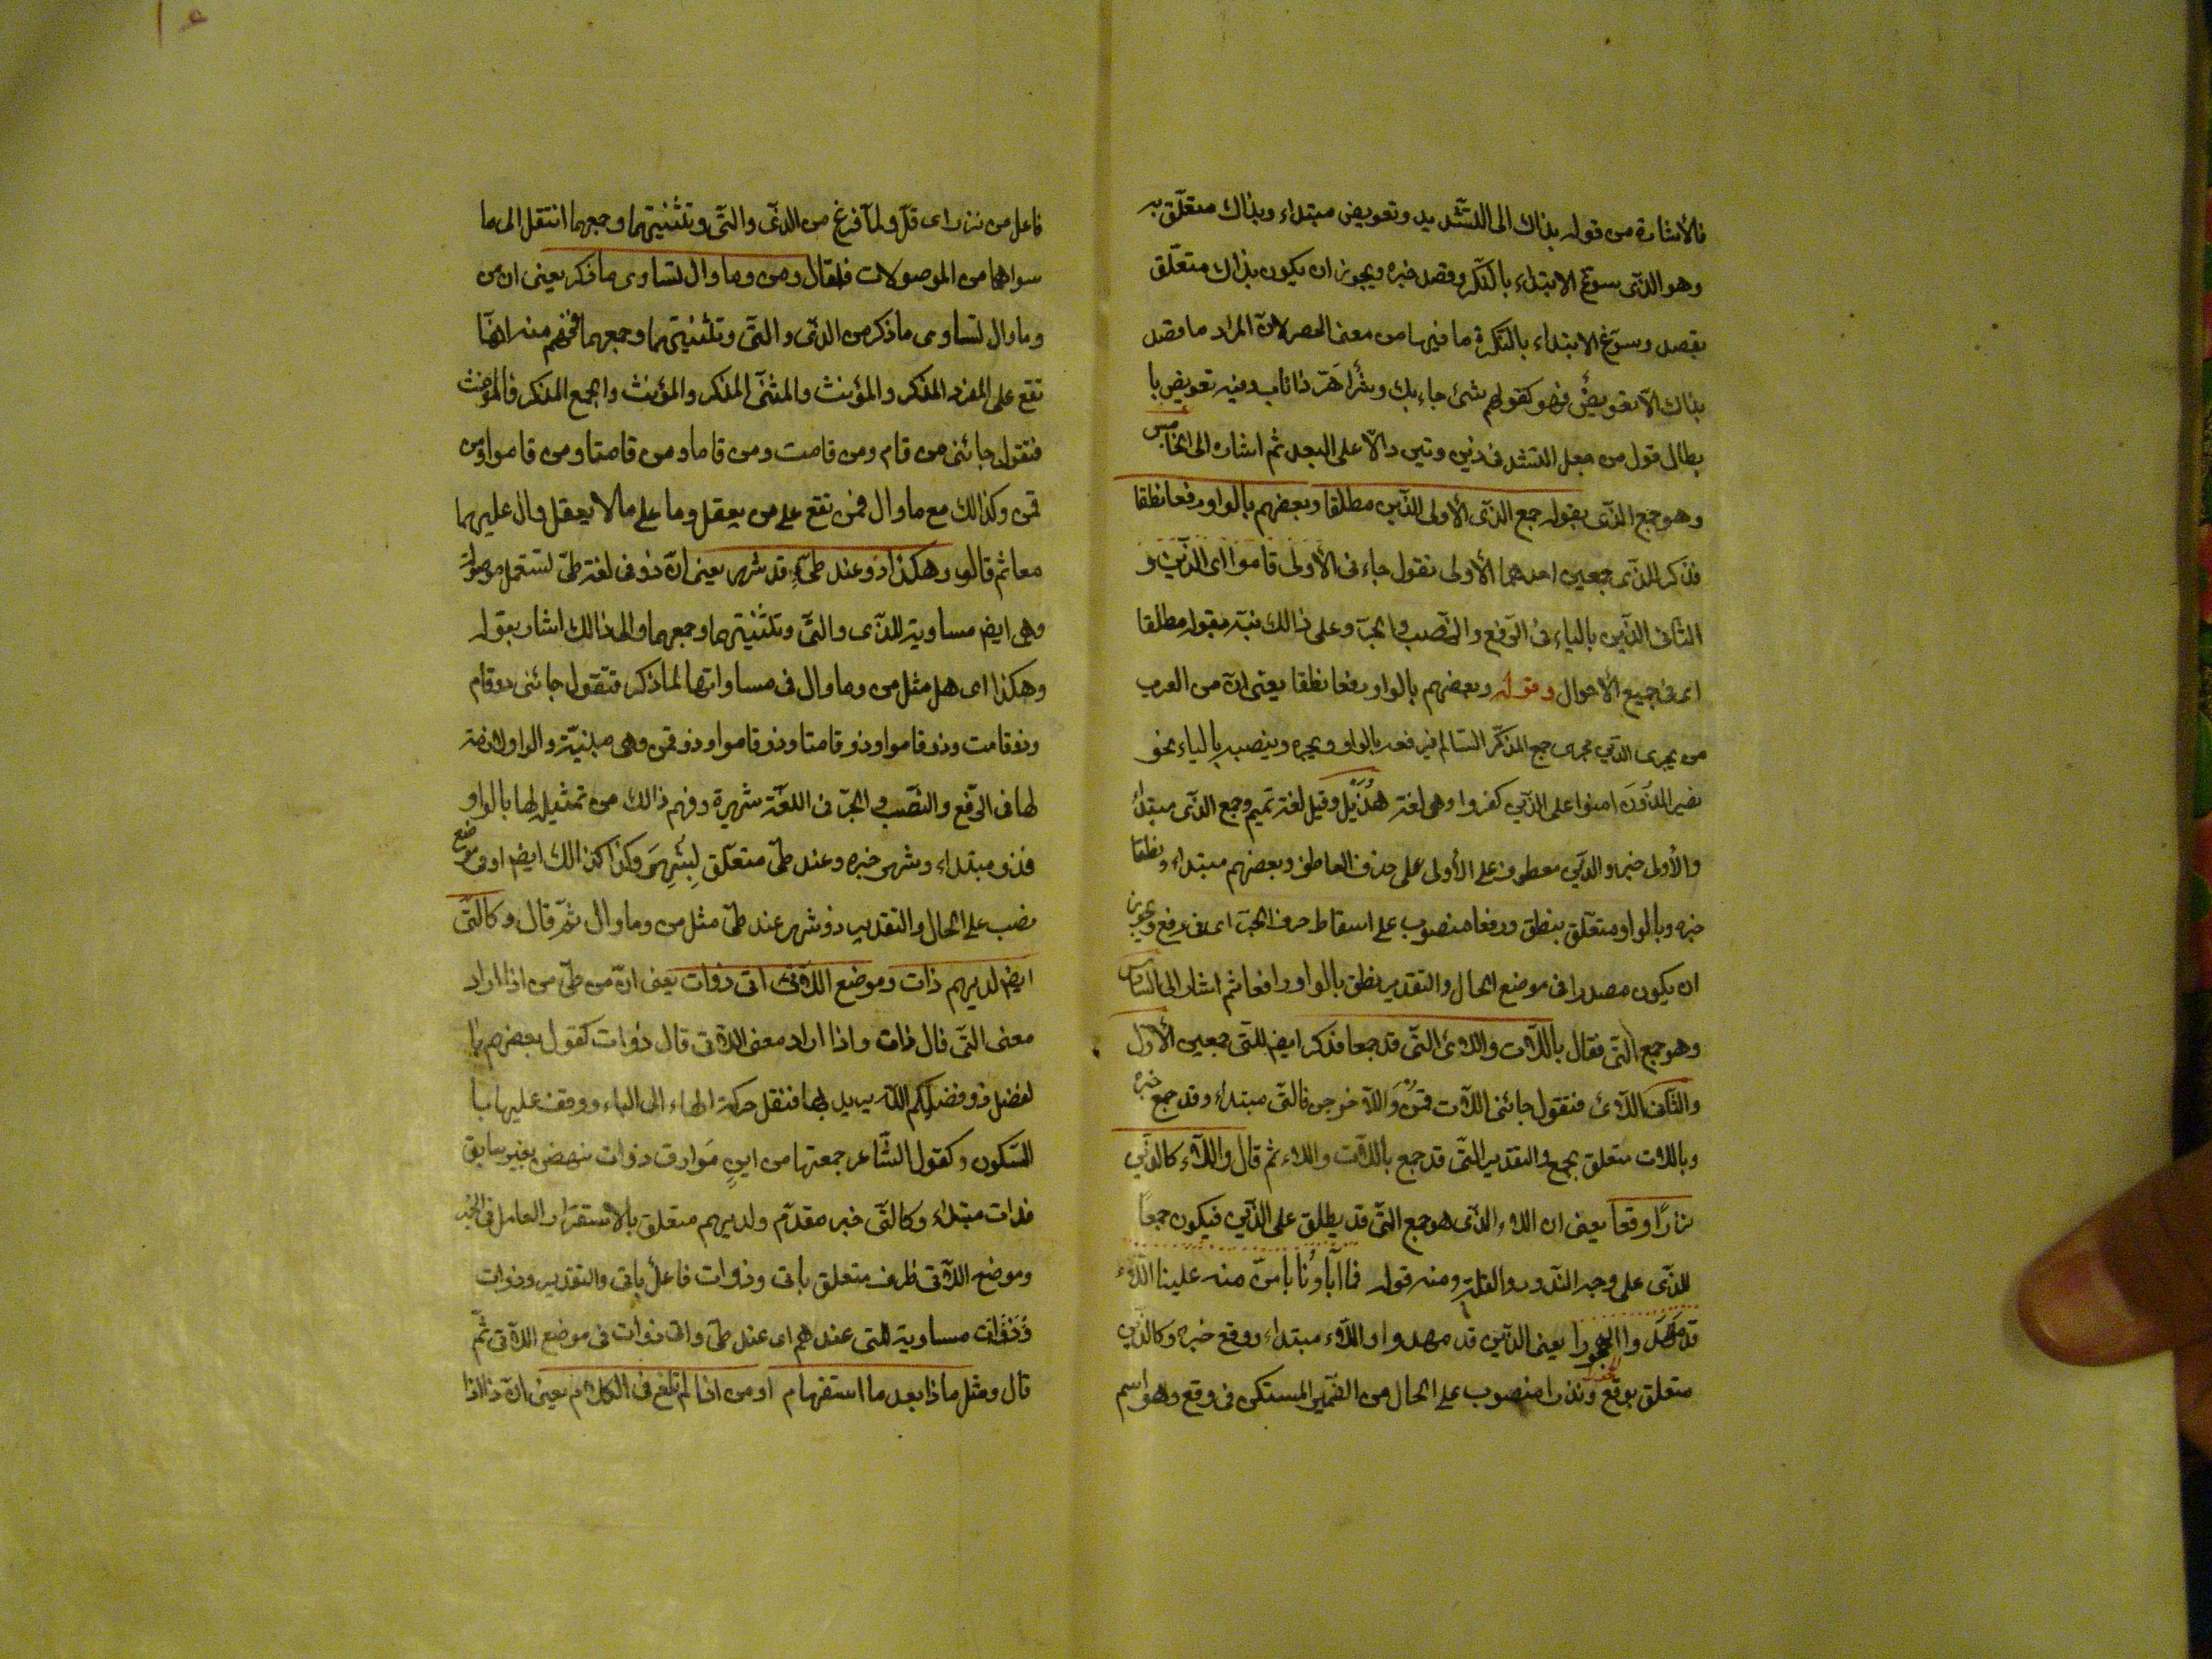 فالأشارة من قوله بذاك الى التشديد وتعويض مبتداء وبذاك متعلق به
وهو الذى سوغ الابتداء بالنكرة وقصد خبره ويجوز ان يكون بذاك متعلق
بقصد وسوغ الابتداء بالنكرة ما فيها من معنى الحصر لان المراد ما قصد
بذاك الا تعويض فهو كقولهم شئ جاء بك وشر اهر ذا ناب وفيه تعويض با
بطال قول من جعل التشديد فى ذين وتين دالا على البعد ثم اشار الى الخامس
وهو جمع الذى بقوله جمع الذى الأولى الذين مطلقا وبعضهم بالواو رفعا نطقا
فذكر للذى جمعين احدهما الأولى تقول جاءنى الأولى قاموا اى الذين و
الثانى الذين بالياء فى الرفع والنصب والجر وعلى ذالك نبه بقوله مطلقا
اى فى جميع الأحوال وقوله وبعضهم بالواو رفعا نطقا يعنى ان من العرب
من يجرى الذين مجرى جمع المذكر السالم فيرفعه بالواو ويجره وينصبه بالياء نحو
نصر اللذون امنوا على الذين كفروا وهى لغة هذيل وقيل لغة تميم وجمع الذى مبتداء
والأولى خبره والذين معطوف على الأولى على حذف العاطف وبعضهم مبتداء ونطقا
خبره وبالواو متعلق بنطق ورفعا منصوب على اسقاط حرف الجر اى فى رفع ويجوز
ان يكون مصدرا فى موضع الحال والتقدير نطق بالواو رافعا ثم اشار الى السادس
وهو جمع التى فقال باللات واللاء التى قد جمعا فذكر ايضا للتى جمعين الأول
والثانى اللائى فتقول جائنى اللات قمن واللاء خرجن فالتى مبتداء وقد جمع خبره
وباللات متعلق بجمع والتقدير التى قد جمع باللات واللاء ثم قال واللاء كالذين
نزرا وقعا يعنى ان اللاء الذى هو جمع التى قد يطلق على الذين فيكون جمعا
للذى على وجه الندور والقلة ومنه قوله فما آباؤنا بامن منه علينا اللاء
قد مهدوا الحجورا يعنى الذين قد مهدوا واللاء مبتداء ووقع خبره وكالذين
متعلق بوقع ونزرا منصوب على الحال من الضمير المستكن فى وقع وهو اسم
فاعل من نزر اى قل ولما فرغ من الذى والتى وتثنيتهما وجمعهما انتقل الى ما
سواهما من الموصولات فقال ومن وما وال تساوى ما ذكر يعنى ان من
وما وال تساوى ما ذكر من الذى والتى وتثنيتهما وجمعهما ففهم منه انها
تقع على المفرد المذكر والمؤنث والمثنى المذكر والمؤنث والجمع المذكر والمؤنث
فتقول جائنى من قام ومن قامت ومن قاما ومن قامتا ومن قاموا ومن
قمن وكذالك مع ما وال فمن تقع على من يعقل وما على ما لا يعقل وال عليهما
معا ثم قال وهكذا ذو عند طئ قد شهر يعنى ان ذو فى لغة طئ تستعمل موصولة
وهى ايضا مساوية للذى والتى وتثنيتهما وجمعهما والى ذالك اشار بقوله
وهكذا اى هل مثل من وما وال فى مساواتها لما ذكر فتقول جائنى ذو قام
وذو قامت وذو قاموا وذو قامتا وذو قاموا وذو قمن وهى مبنية والواو لازمة
لها فى الرفع والنصب والجر فى اللغة شهيرة وفهم ذالك من تمثيله لها بالواو
فذو مبتداء وشهر خبره وعند طئ متعلق بشهر وكذا كذالك ايضا او فى موضع
نصب على الحال والتقدير ذو شهر عند طئ مثل من وما وال ثم قال وكالتى
ايضا لديهم ذات وموضع اللاتى اتى ذوات يعنى ان من طئ من اذا اراد
معنى التى قال ذات واذا اراد معنى اللاتى قال ذوات كقول بعضهم با
لفضل ذو فضلكم الله به يريد بها فنقل حركة الهاء الى الباء ووقف عليها با
لسكون وكقول الشاعر جمعتها من اينق موارق ذوات ينهضن بغير سايق
فذات مبتداء وكالتى خبر مقدم ولديهم متعلق بالاستقرار العامل فى الخبر
وموضع اللاتى ظرف متعلق باتى وذوات فاعل باتى والتقدير وذوات
مساوية للتى عندهم اى عند طئ واتى ذوات فى موضع اللاتى ثم
قال ومثل ماذا بعد ما استفهام او من اذا لم تلغ فى الكلام يعنى ان ذا اذا